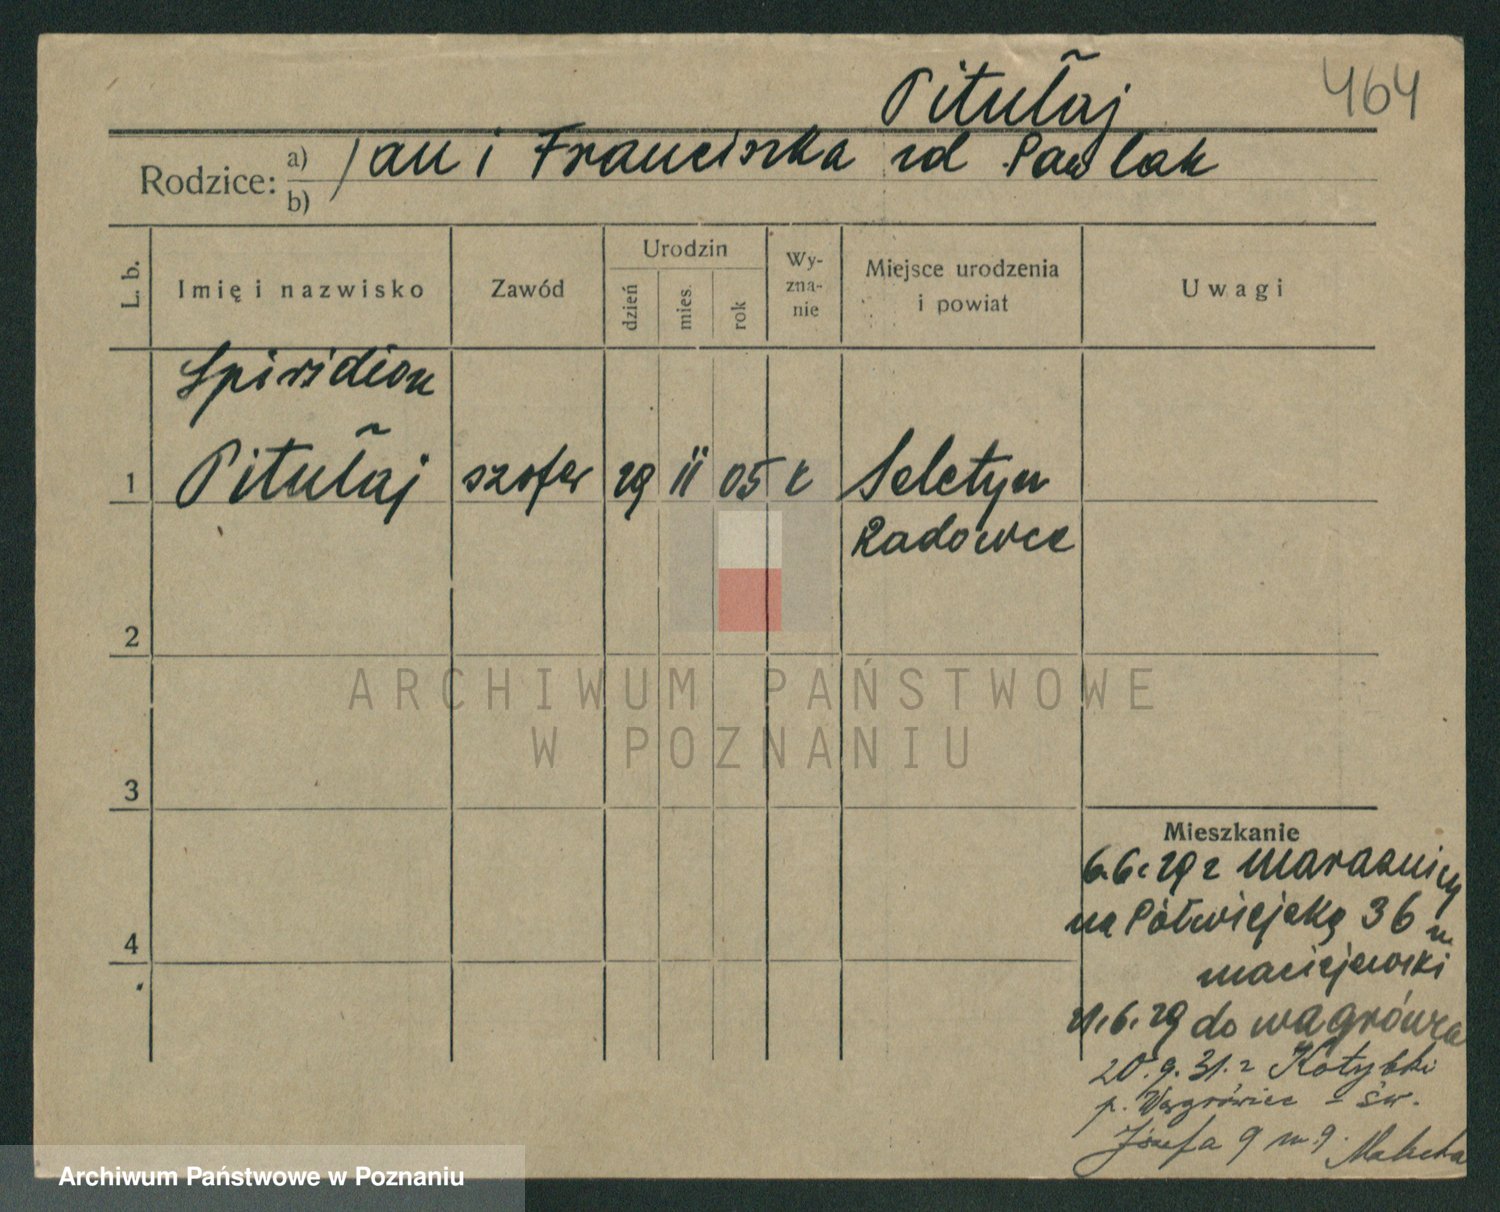 Pitułaj
464
Rodzice: a) b) Jan i Franciszka zd Pawlak
L. b.
Imię i nazwisko
Zawód
Urodzin
dzień
mies.
rok
Wy-
zna-
nie
Miejsce urodzenia
i powiat
Uwagi
Spiridion
1 Pitułaj szofer 29 II 05 k Seletyn
Radowce
2
3
4
ARCHIWUM PAŃSTWOWE
W POZNANIU
Mieszkanie
6.6.29 z
na Półwiejską 36 m
Maciejewski
21.6.29 do Wągrówca
20.9.31. z Kołybki
p. Wągrówiec - św.
Józefa 9 m 9.
Archiwum Państwowe w Poznaniu